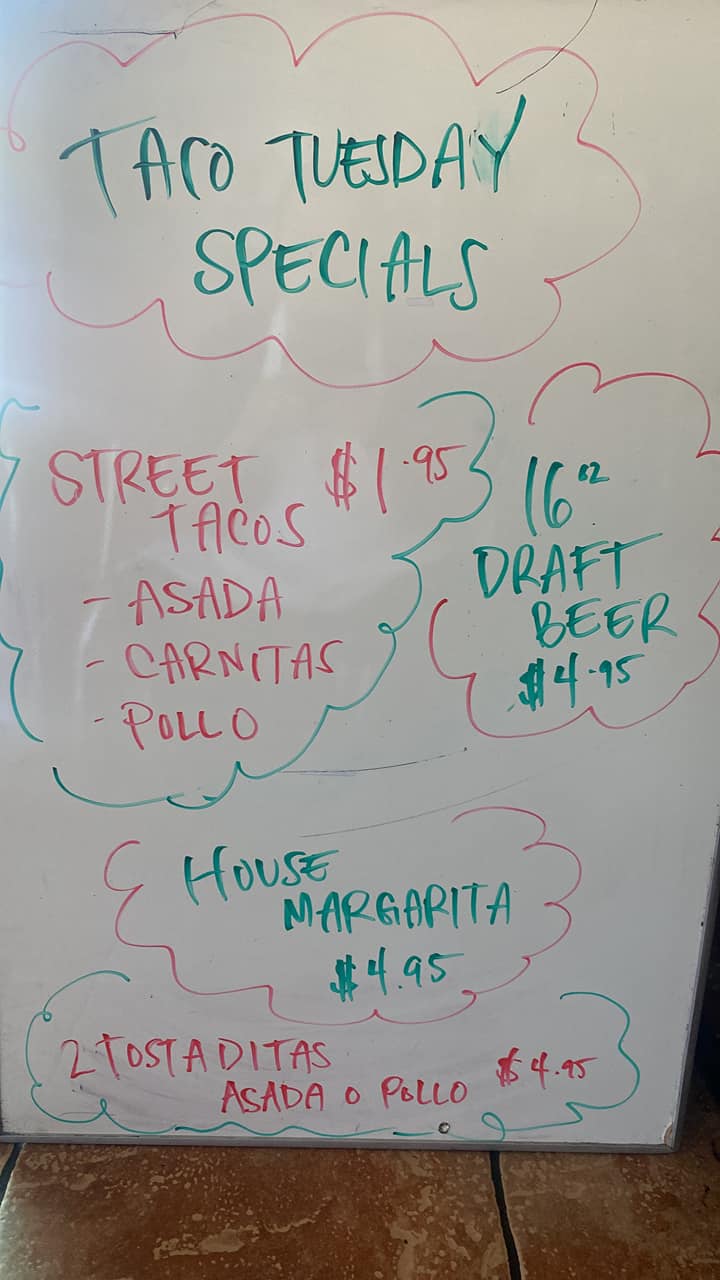 TACO TUESDAY
SPECIALS
STREET $1.95
TACOS
- ASADA
- CARNITAS
- POLLO
16oz
DRAFT
BEER
$4.95
HOUSE
MARGARITA
$4.95
2 TOSTADITAS
ASADA O POLLO $4.95